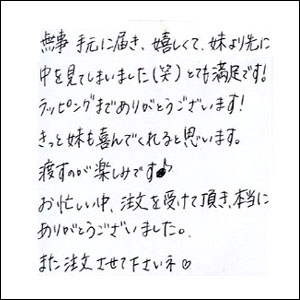 無事 手元に届き、嬉しくて、妹より先に
中を見てしまいました(笑)とても満足です!
ラッピングまでありがとうございます!
きっと妹も喜んでくれると思います。
渡すのが楽しみです♪
お忙しい中、注文を受けて頂き、本当に
ありがとうございました。
また注文させて下さいネ♡